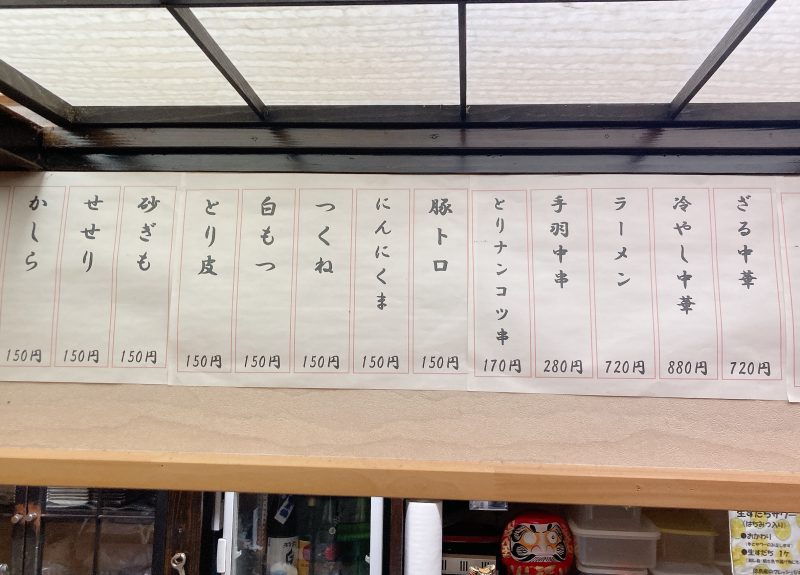 ざる中華
720円
冷やし中華
880円
ラーメン
720円
手羽中串
280円
とりナンコツ串
170円
豚トロ
150円
にんにくま
150円
つくね
150円
白もつ
150円
とり皮
150円
砂ぎも
150円
せせり
150円
かしら
150円
生すだちサワー
(はちみつ入り)
●おかわり
●生すだち 1ケ